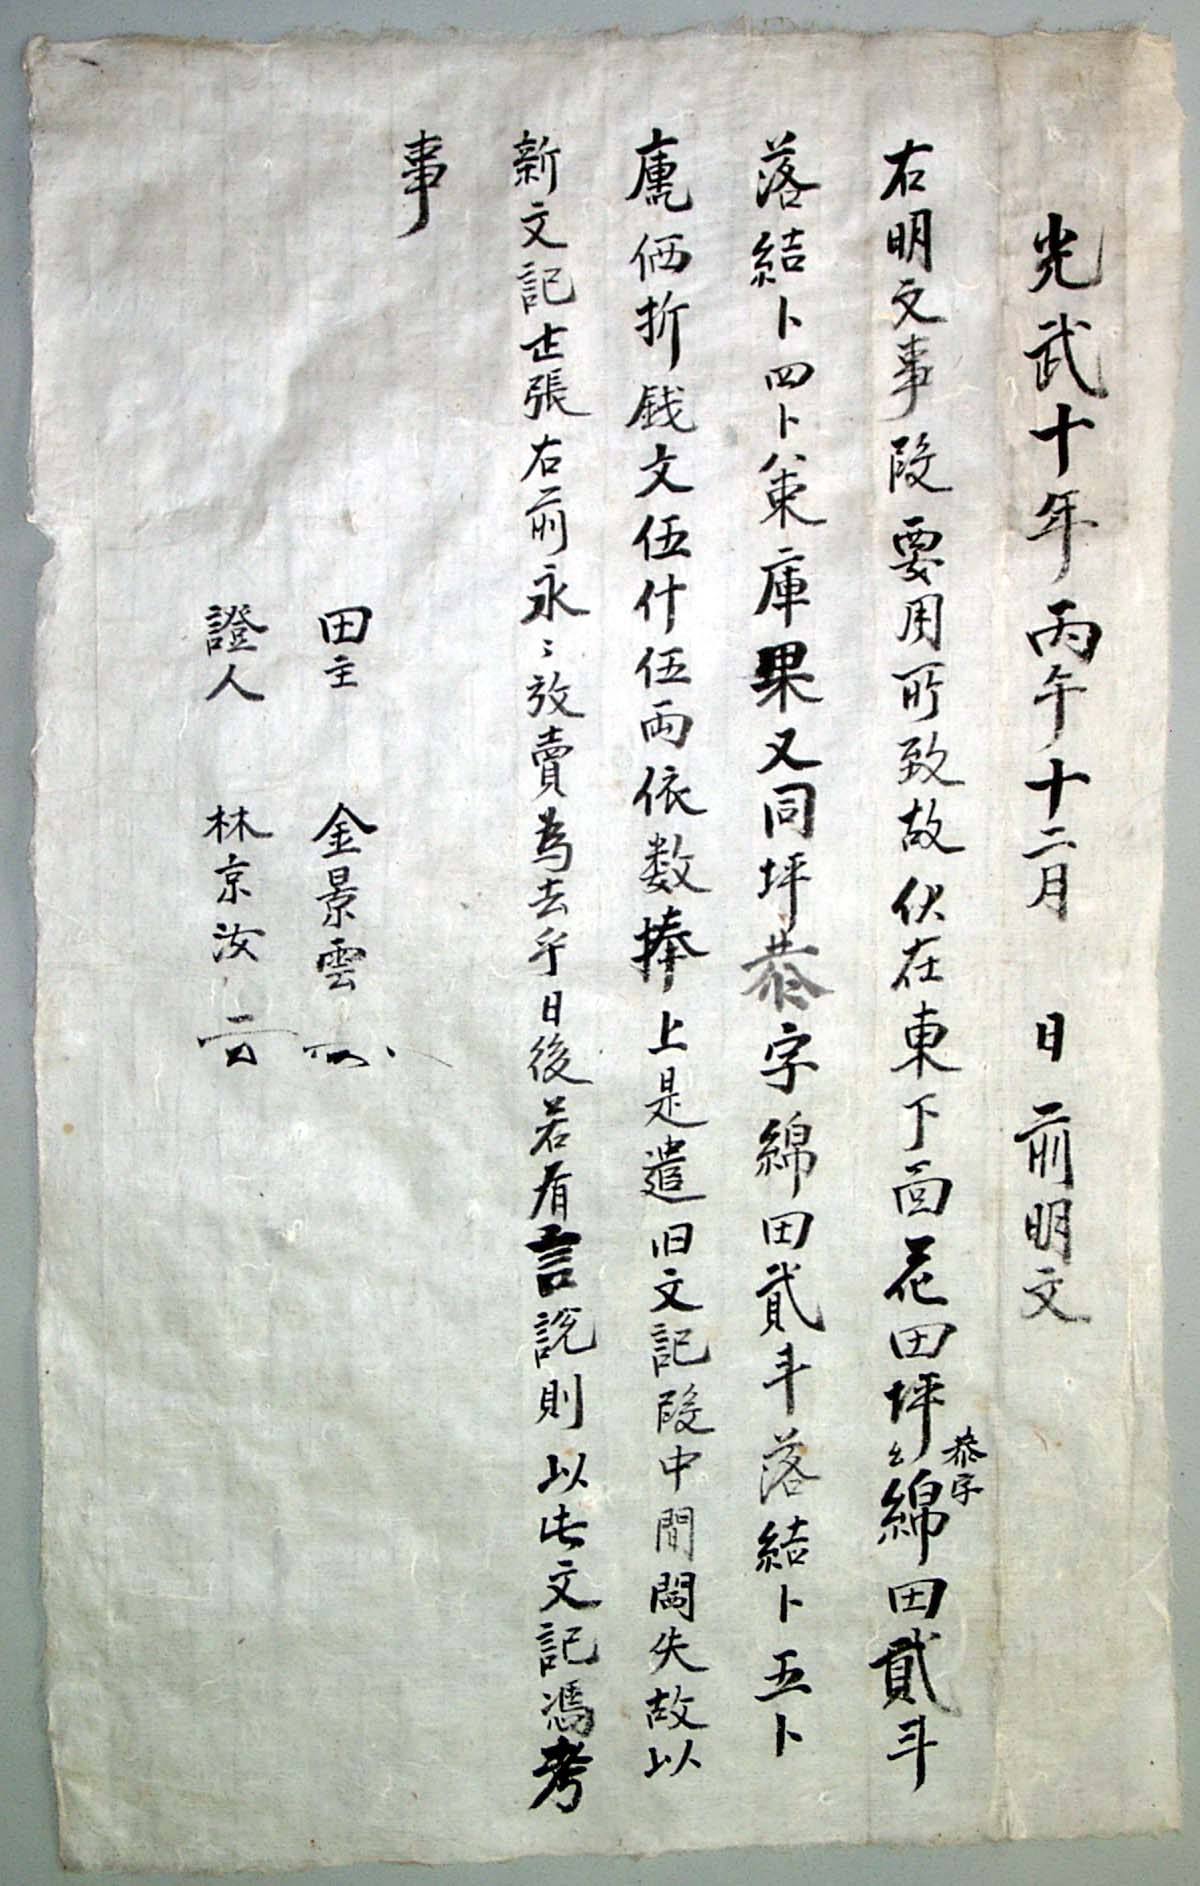 光武十年丙午十二月 日 前明文
右明文事段要用所致故伏在東下面花田坪恭字綿田貳斗
落結卜四卜八束庫果又同坪恭字綿田貳斗落結卜五卜
庫価折銭文伍什伍両依数捧上是遣旧文記段中間闊失故以
新文記壱張右前永〻放賣為去乎日後若有言説則以此文記憑考
事
田主 金景雲
證人 林京汝